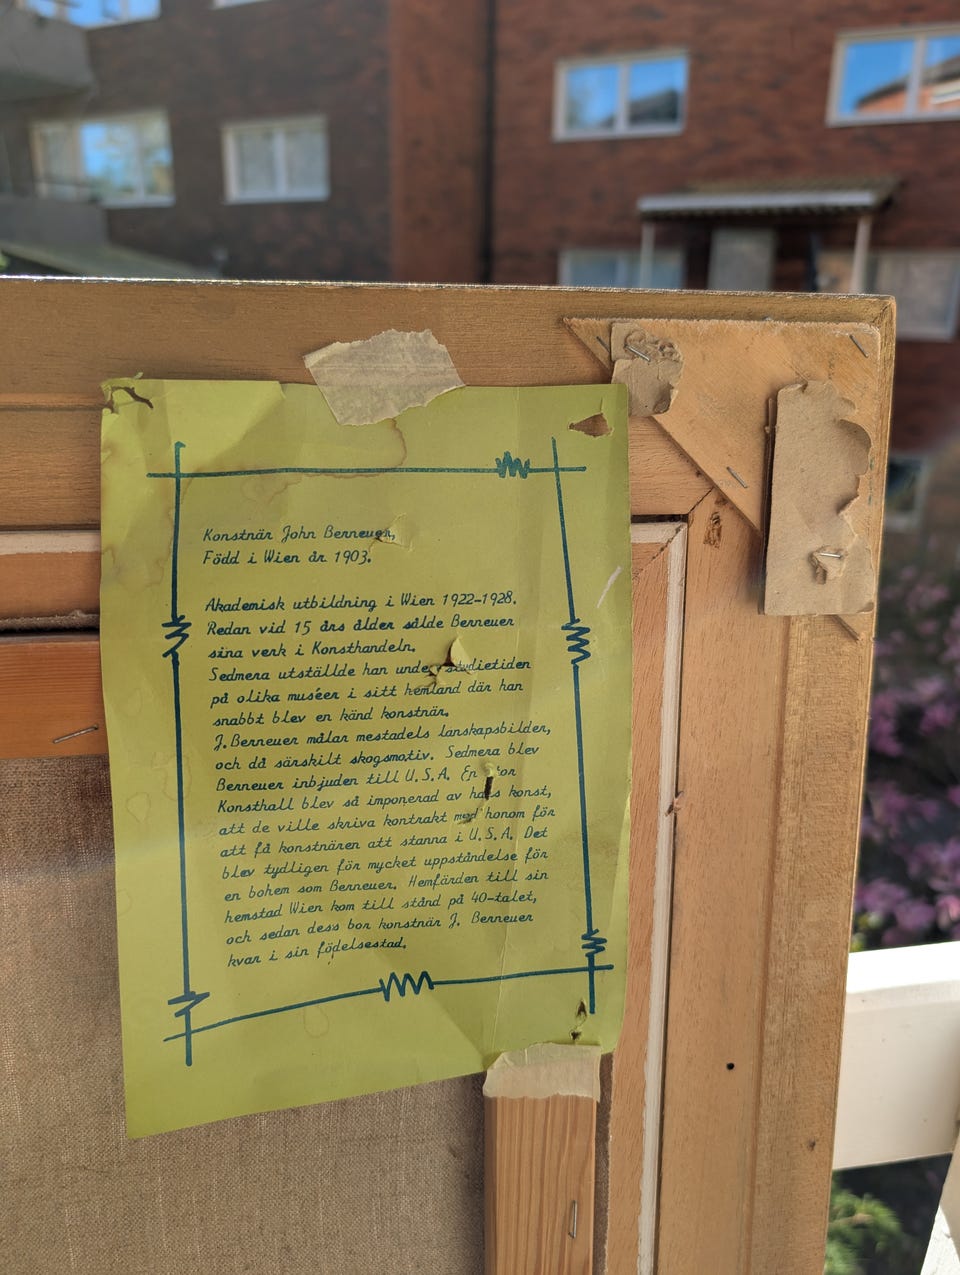 Konstnär John Berneuer,
Född i Wien år 1903.
Akademisk utbildning i Wien 1922-1928.
Redan vid 15 års ålder sålde Berneuer
sina verk i Konsthandeln.
Sedmera utställde han under studietiden
på olika muséer i sitt hemland där han
snabbt blev en känd konstnär.
J. Berneuer målar mestadels lanskapsbilder,
och då särskilt skogsmotiv. Sedmera blev
Berneuer inbjuden till U.S.A. En stor
Konsthall blev så imponerad av hans konst,
att de ville skriva kontrakt med honom för
att få konstnären att stanna i U.S.A. Det
blev tydligen för mycket uppståndelse för
en bohem som Berneuer. Hemfärden till sin
hemstad Wien kom till stånd på 40-talet,
och sedan dess bor konstnär J. Berneuer
kvar i sin födelsestad.